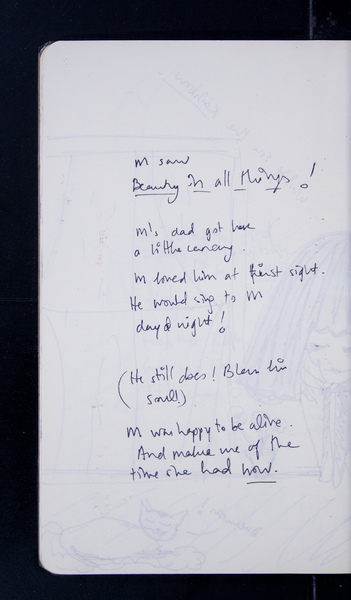 M saw
Beauty in all things!
M's dad got her
a little canary.
M loved him at first sight.
He would sing to M
day & night!
(He still does! Bless his
soul!)
M was happy to be alive.
And make use of the
time she had now.